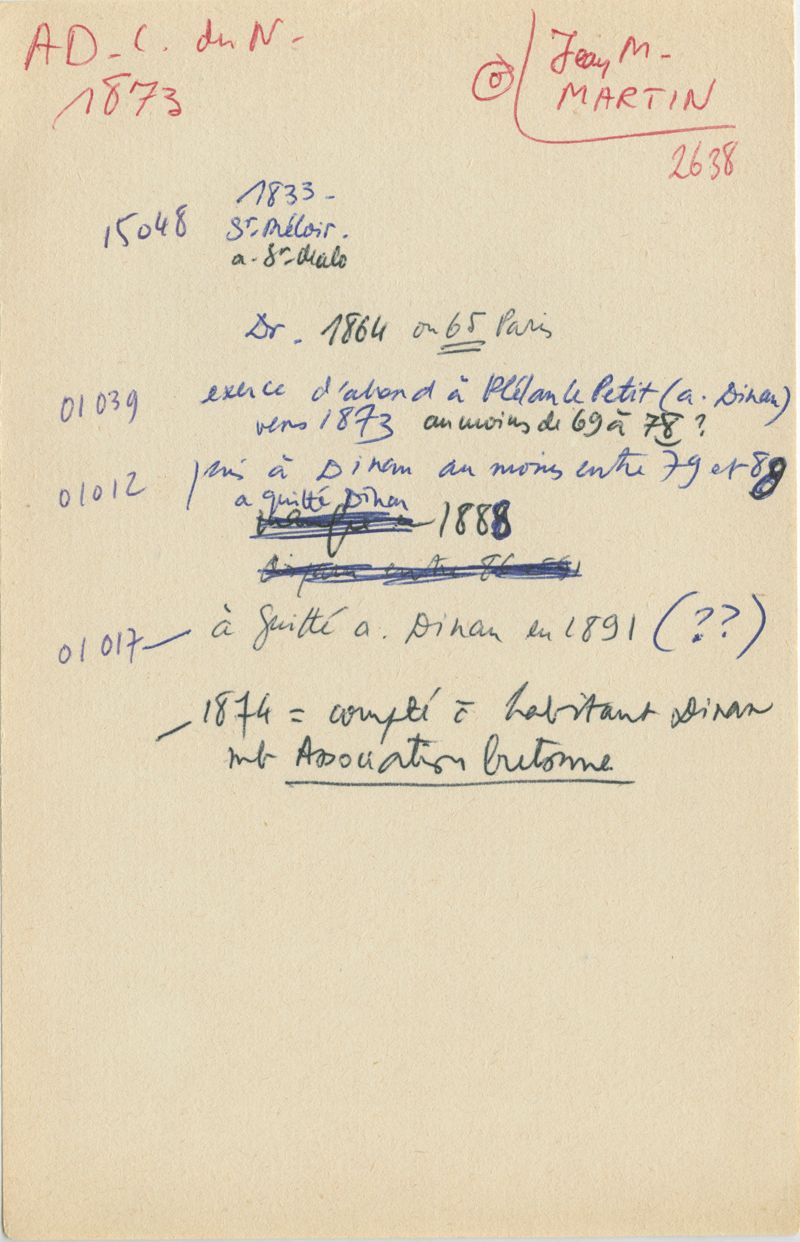 AD-C. du N-
1873
Jean M-
MARTIN
2638
1833-
15048 St-Méloir.
a. St-Malo
Dr. 1864 ou 65 Paris
01039 exerce d'abord à Plélan le Petit (a. Dinan)
vers 1873 au moins de 69 à 78 ?
01012 puis à Dinan au moins entre 79 et 88
a quitté Dinan
1888
01017 à Guitté a. Dinan en 1891 (??)
1874 = compté c habitant Dinan
mb Association bretonne